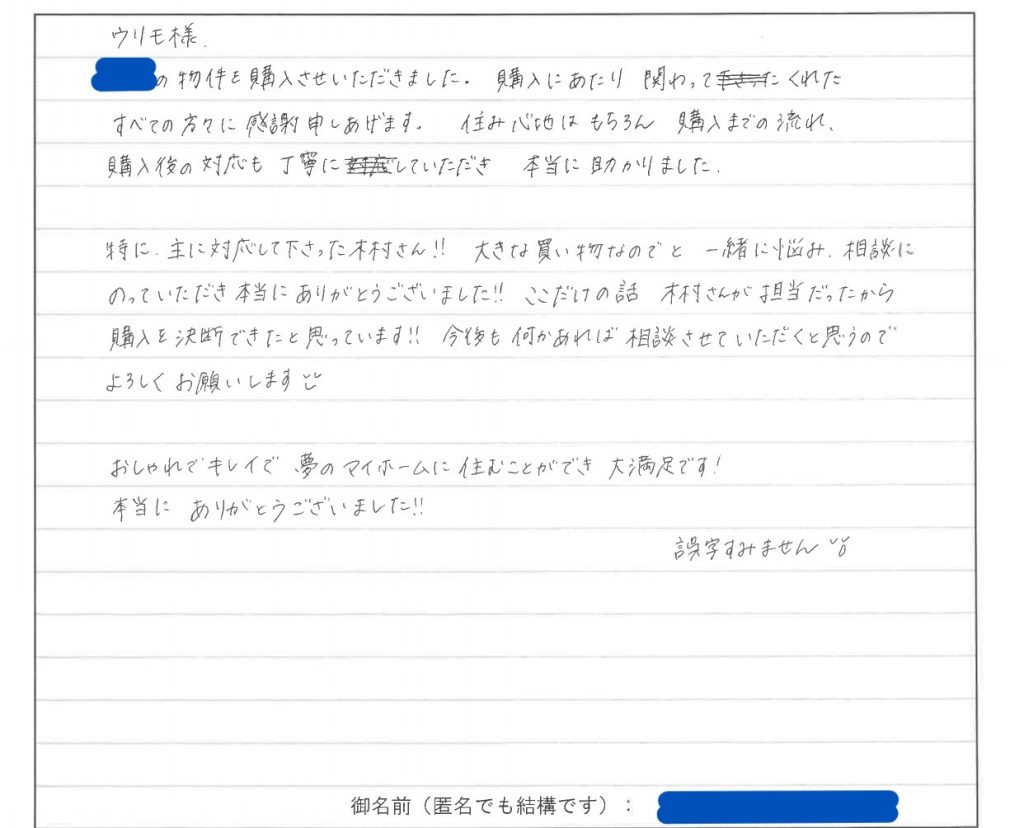 ウリモ様.
の物件を購入させいただきました。 購入にあたり 関わってくれた
すべての方々に感謝申しあげます。 住み心地はもちろん 購入までの流れ、
購入後の対応も 丁寧にしていただき 本当に助かりました.
特に、主に対応して下さった木村さん!! 大きな買い物なのでと 一緒に悩み、相談に
のっていただき本当にありがとうございました!! ここだけの話 木村さんが担当だったから
購入を決断できたと思っています!! 今後も何かあれば相談させていただくと思うので
よろしくお願いします
おしゃれでキレイで 夢のマイホームに住むことができ 大満足です!
本当に ありがとうございました!!
誤字すみません
御名前（匿名でも結構です）：